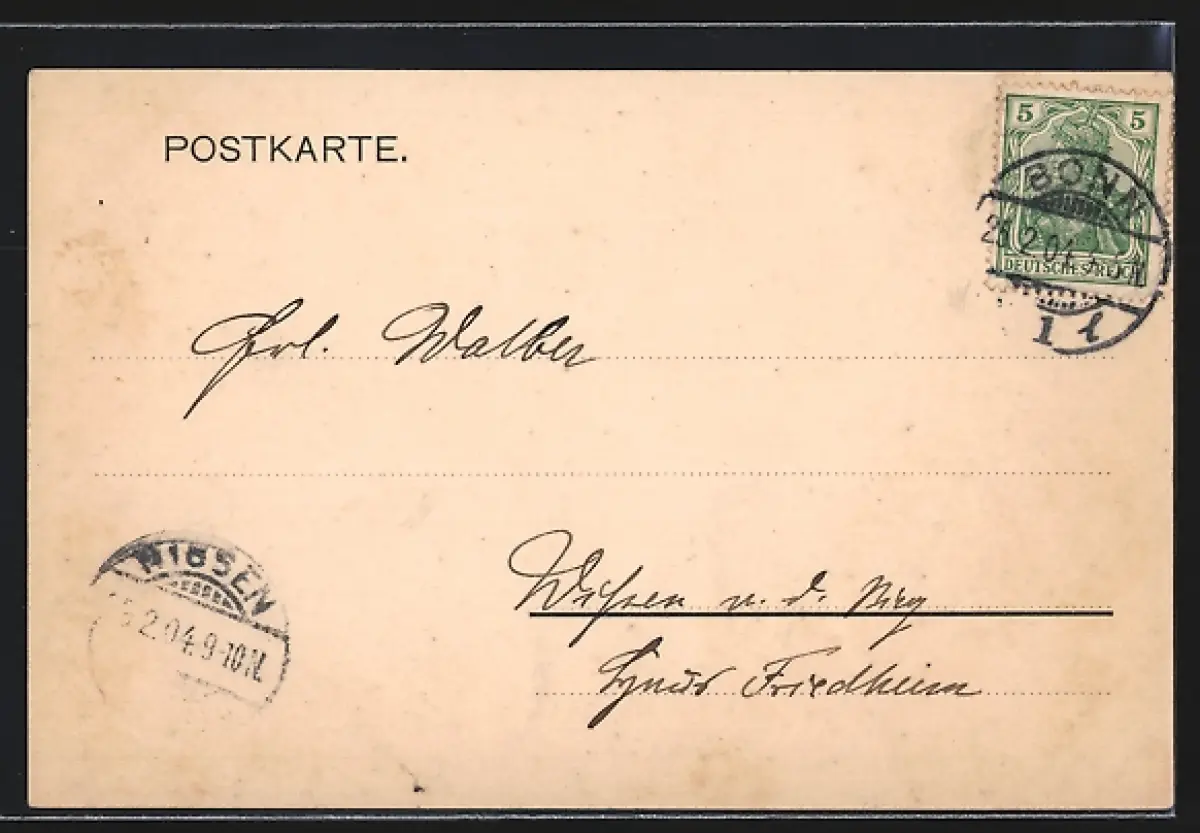 POSTKARTE.
5 5
BONN
25.2.04
DEUTSCHES REICH
1 l
Frl. Walber
WISSEN
25.2.04.9-10N.
Wissen a. d. Sieg
Haus Friedheim